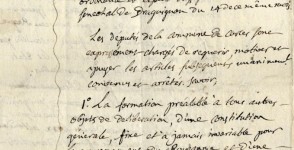 senechal de Draguignan du 24 de ce même mois
Les deputés de la commune de Carces sont
expressement chargés de requerir motiver et
apuyer les articles suivants unanimement
convenus et arrêtés. savoir,
1° La formation prealable a tous autres
objets de deliberation, d'une constitution
generale, fixe et a jamais invariable pour